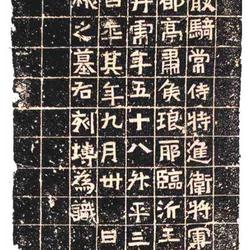 散騎常侍特進衛將軍
都亭肅侯琅耶臨沂王
丹虎年五十八升平三
日卒其年九月卅日
彬之墓右刻塼為識